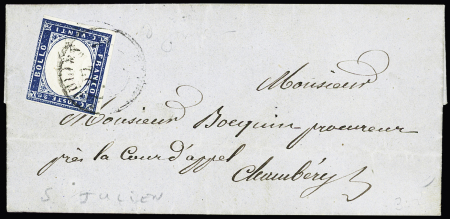 FRANCO
BOLLO
C. POSTE 20
C. VENTI
Monsieur
Monsieur Bocquin procureur
près la Cour d'appel
Chambéry
S. JULIEN